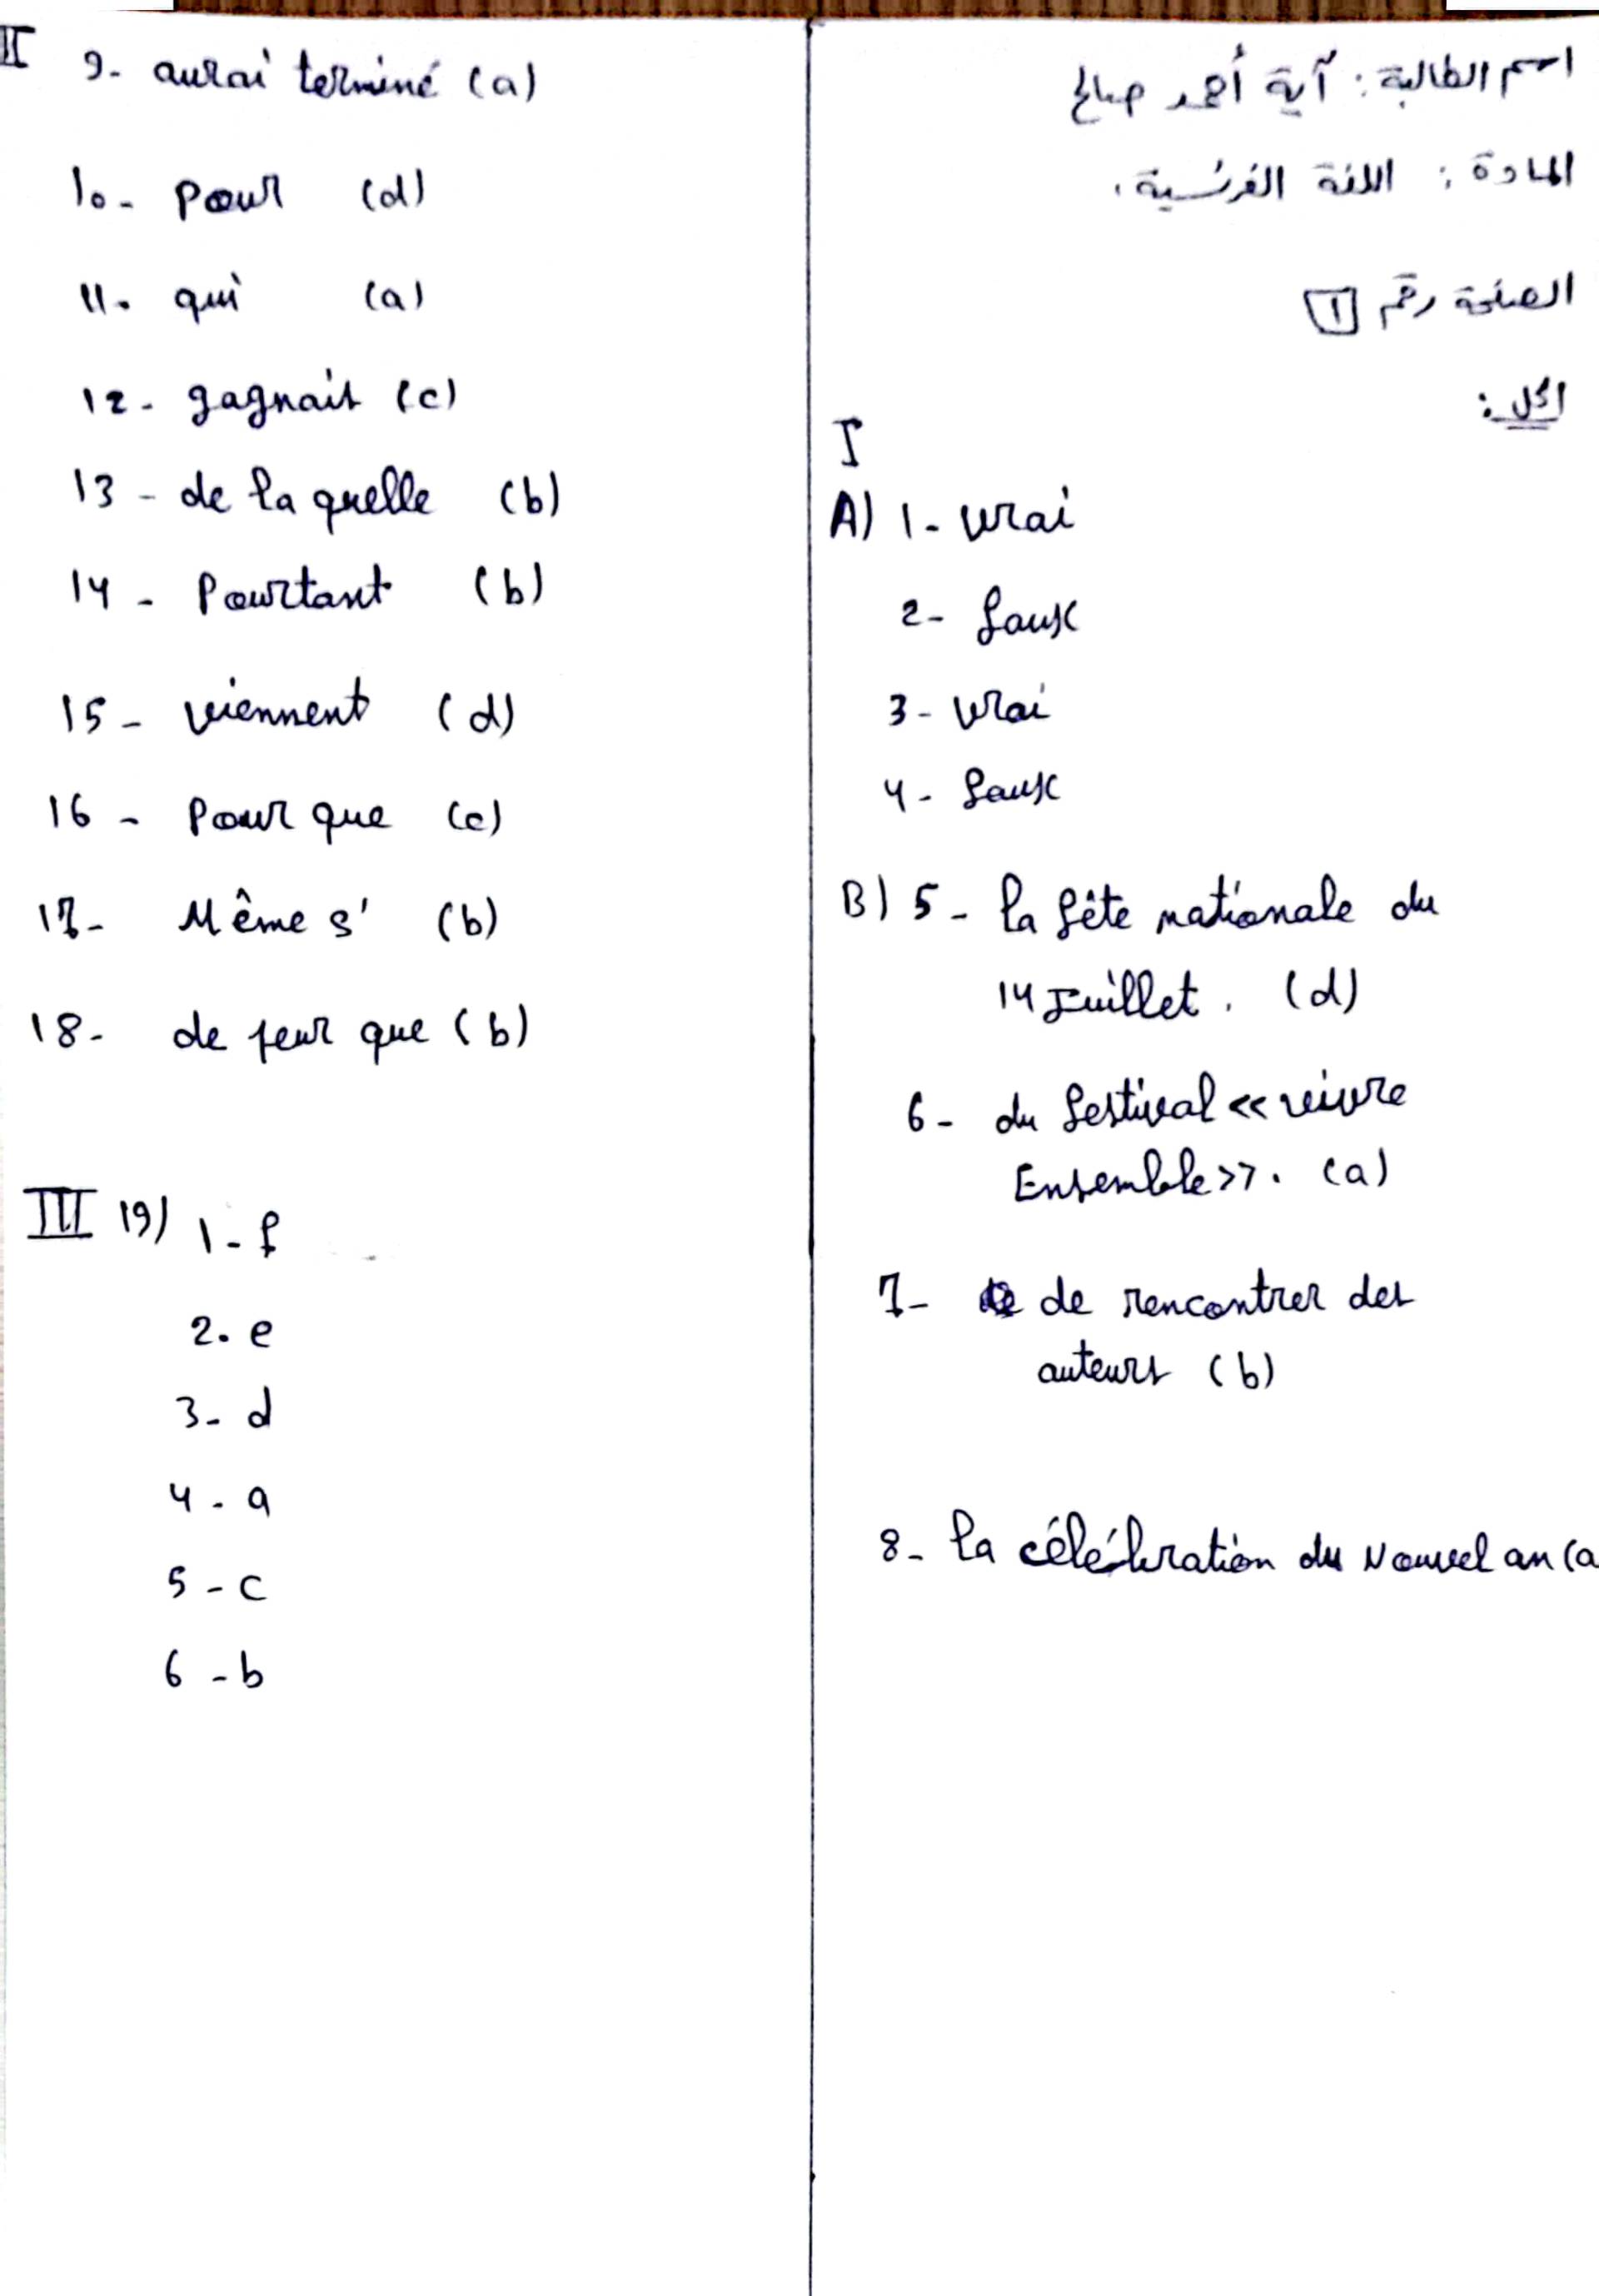 اسم الطالبة : آية أحمد صالح
المادة : اللغة الفرنسية .
الصفحة رقم 1
الحل :
I
A) 1- vrai
2- faux
3- vrai
4- faux
B) 5- la fête nationale du
14 Juillet. (d)
6- du festival << vivre
Ensemble >>. (a)
7- de rencontrer des
auteurs (b)
8- la célébration du Nouvel an (a
II 9- aurai terminé (a)
10- Pour (d)
11. qui (a)
12- gagnait (c)
13- de la quelle (b)
14- Pourtant (b)
15- viennent (d)
16- Pour que (c)
17- Même s' (b)
18- de peur que (b)
III 19) 1- f
2. e
3- d
4- a
5- c
6- b